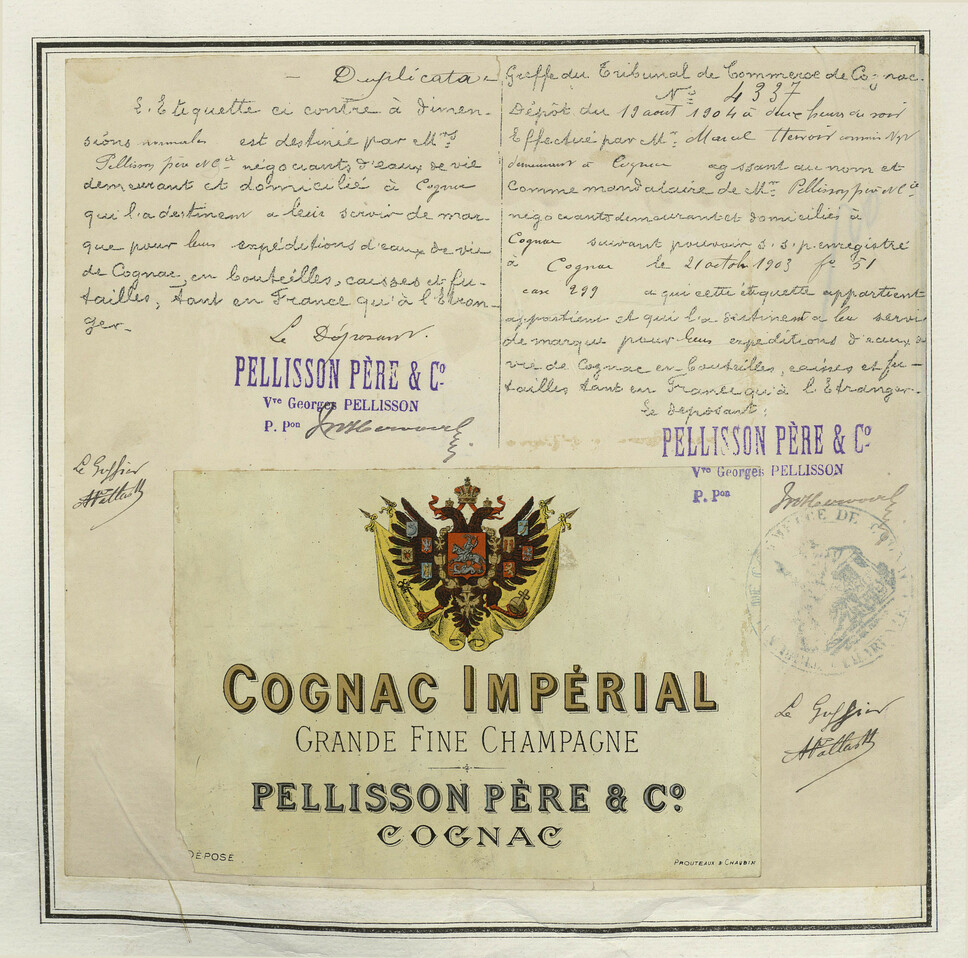 Duplicata
L'Etiquette ci contre à dimen-
sions normales est destinée par Mrs
Pellisson père & Cie négociants d'eaux de vie
demeurant et domicilié à Cognac
qui l'a destinent a leur servir de mar-
que pour leurs expéditions d'eaux de vie
de Cognac, en bouteilles, caisses et fu-
tailles, tant en France qu'à l'Etran-
ger.
Le Déposant.
PELLISSON PÈRE & Co
Vve Georges PELLISSON
P. Pon
Le Greffier
Greffe du Tribunal de Commerce de Cognac.
No 4337
Dépôt du 19 août 1904 à deux heures du soir
Effectué par Mr Marcel
demeurant à Cognac agissant au nom et
comme mandataire de Mrs Pellisson père & Cie
négociants demeurant et domiciliés à
Cognac suivant pouvoir s.s.p. enregistré
à Cognac le 21 octob 1903 fo 51
case 299 a qui cette étiquette appartient
appartient et qui l'a destinent a leu servi
de marque pour leurs expéditions d'eaux de
vie de Cognac en bouteilles, caisses et fu-
tailles tant en France qu'à l'Etranger.
Le déposant:
PELLISSON PÈRE & Co
Vve Georges PELLISSON
P. Pon
COMMERCE DE
Le Greffier
COGNAC IMPÉRIAL
GRANDE FINE CHAMPAGNE
PELLISSON PÈRE & Co
COGNAC
DÉPOSÉ
PROUTEAUX & CHAUBIN